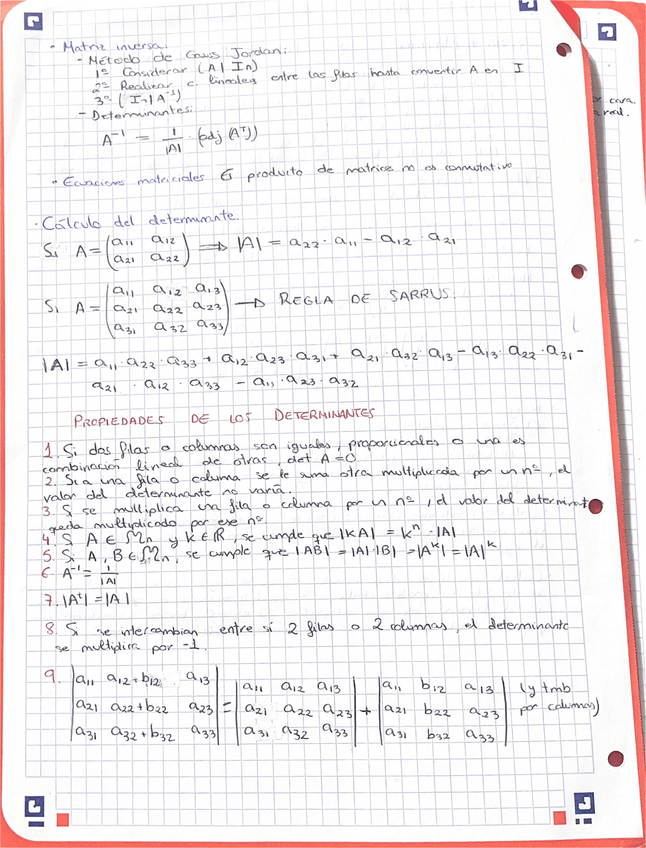 · Matriz inversa:
- Método de Gauss Jordan:
1º Considerar (A | In)
2º Realizar c. lineales entre las filas hasta convertir A en I
3º (In | A⁻¹)
- Determinantes:
A⁻¹ = 1/|A| · (adj (Aᵗ))
· Ecuaciones matriciales producto de matrices no es conmutativo
· Cálculo del determinante.
Si A = (a11 a12 / a21 a22) ⟹ |A| = a22 · a11 − a12 · a21
Si A = (a11 a12 a13 / a21 a22 a23 / a31 a32 a33) → REGLA DE SARRUS:
|A| = a11 · a22 · a33 + a12 · a23 · a31 + a21 · a32 · a13 − a13 · a22 · a31 −
a21 · a12 · a33 − a11 · a23 · a32
PROPIEDADES DE LOS DETERMINANTES
1. Si dos filas o columnas son iguales, proporcionales o una es
combinación lineal de otras, det A = 0
2. Si a una fila o columna se le suma otra multiplicada por un nº, el
valor del determinante no varía.
3. Si se multiplica una fila o columna por un nº, el valor del determinante
queda multiplicado por ese nº.
4. Si A ∈ Mn y K ∈ R, se cumple que |KA| = Kⁿ · |A|
5. Si A, B ∈ Mn, se cumple que |AB| = |A|·|B| = |Aᵏ| = |A|ᵏ
6. A⁻¹ = 1/|A|
7. |Aᵗ| = |A|
8. Si se intercambian entre sí 2 filas o 2 columnas, el determinante
se multiplica por -1.
9. |a11 a12+b12 a13 / a21 a22+b22 a23 / a31 a32+b32 a33| = |a11 a12 a13 / a21 a22 a23 / a31 a32 a33| + |a11 b12 a13 / a21 b22 a23 / a31 b32 a33| (y tmb por columnas)
cara.
real.